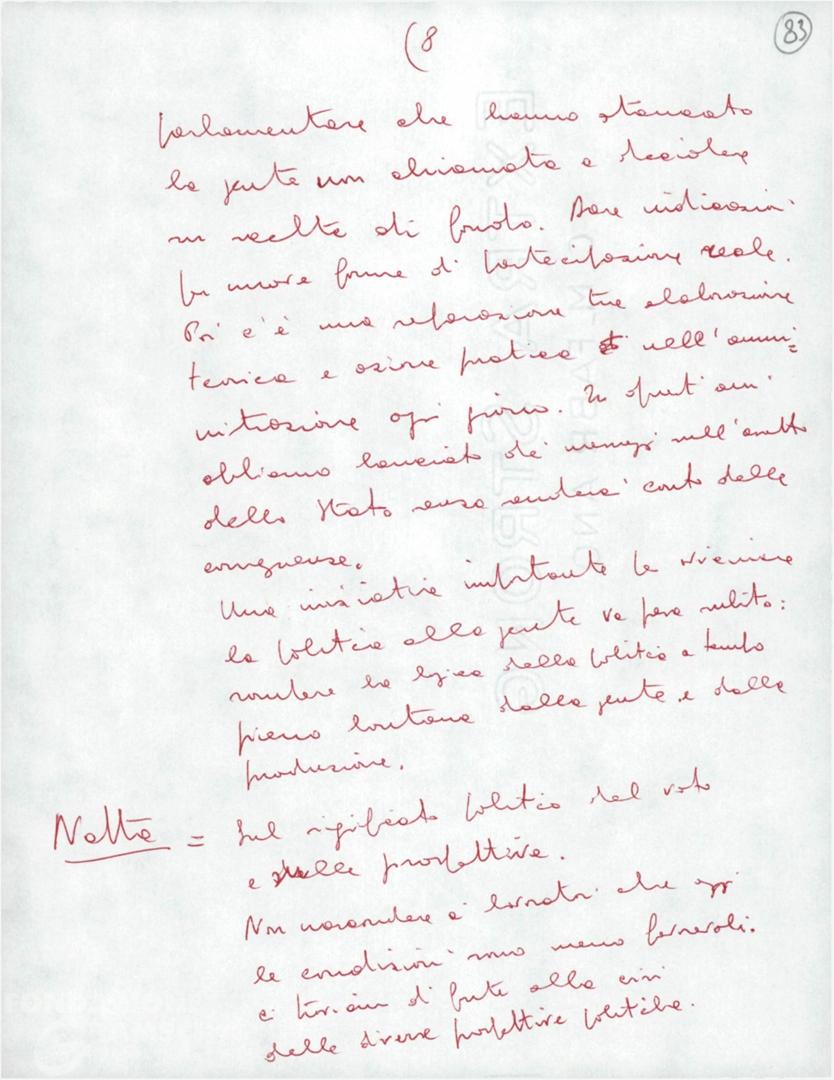 (8
83
parlamentare che hanno stancato
la gente non chiamata a decidere
su scelte di fondo. Dare indicazioni
per nuove forme di partecipazione reale.
Poi c'è una separazione tra elaborazione
teorica e azione pratica nell'ammi=
nistrazione ogni giorno. In questi anni
abbiamo lanciato dei messaggi sull'assetto
dello Stato senza renderci conto delle
conseguenze.
Una iniziativa importante per riavvicinare
la politica alla gente va fatta subito:
rompere la logica della politica a tempo
pieno lontana dalla gente e dalla
produzione.
Natta = Sul significato politico del voto
e sulle prospettive.
Non nascondere ai lavoratori che oggi
le condizioni sono meno favorevoli.
ci troviamo di fronte alla crisi
delle diverse prospettive politiche.